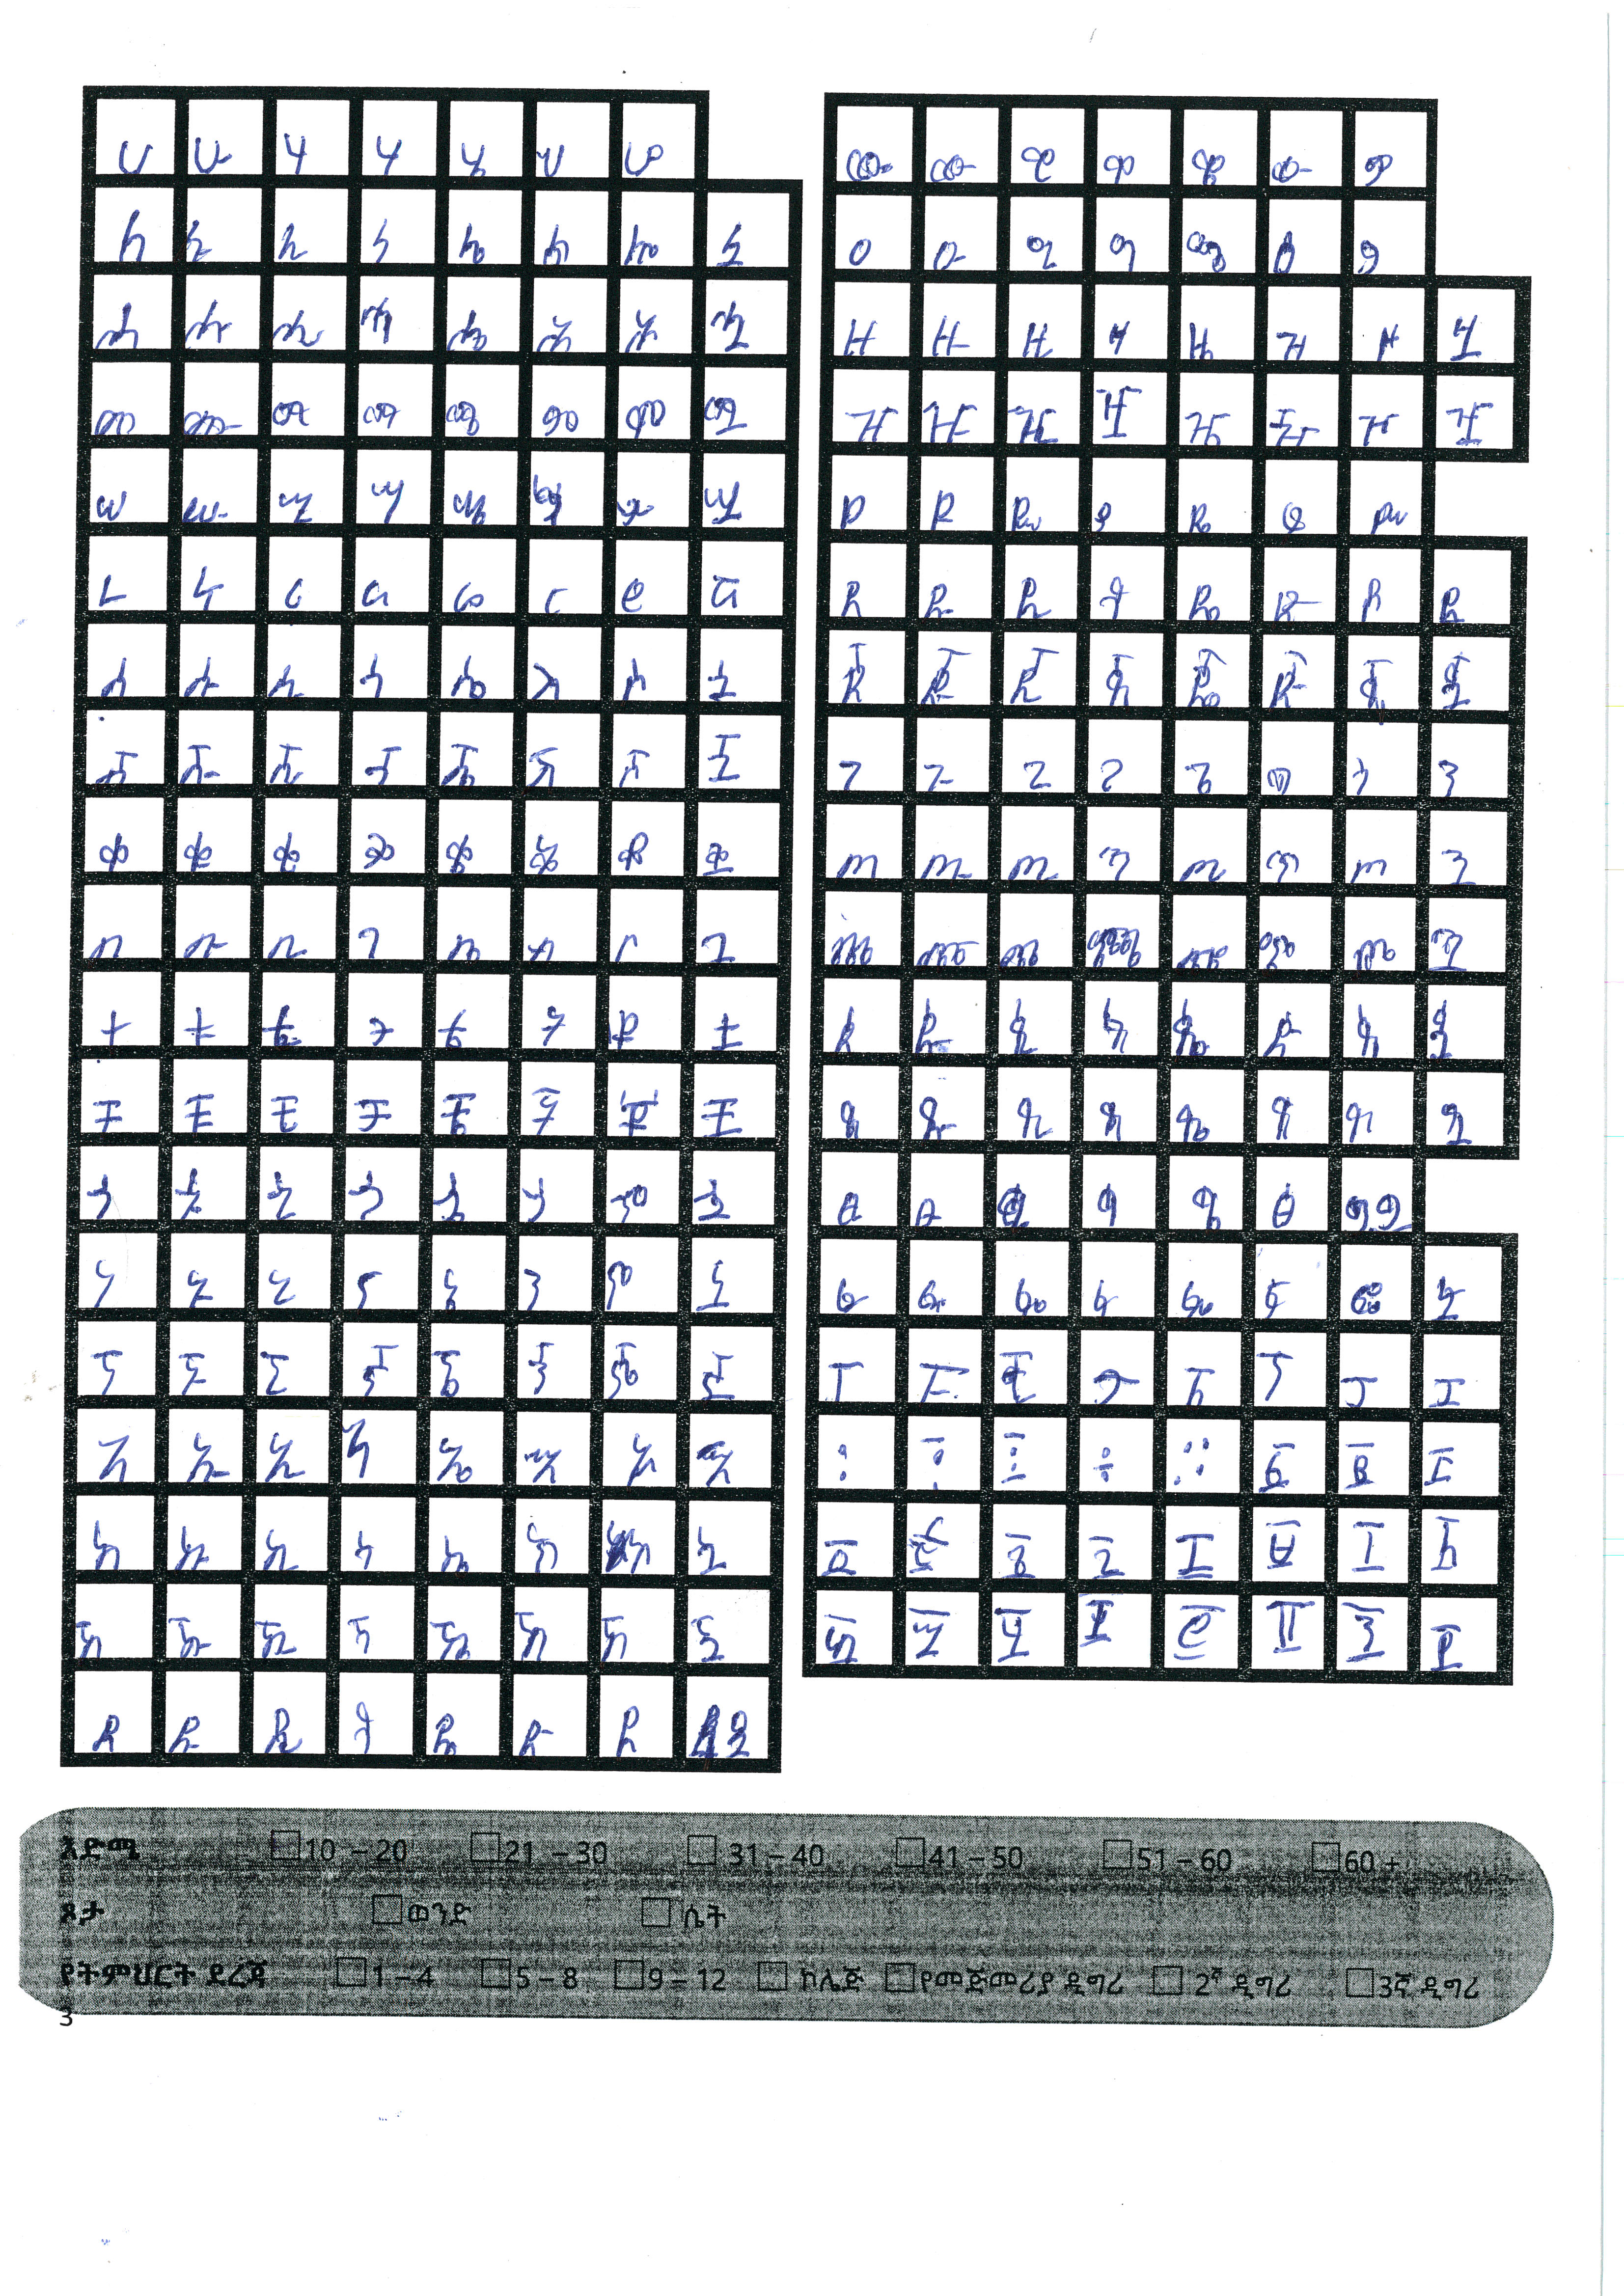 ሀ ሁ ሂ ሃ ሄ ህ ሆ
ለ ሉ ሊ ላ ሌ ል ሎ ሏ
ሐ ሑ ሒ ሓ ሔ ሕ ሖ ሗ
መ ሙ ሚ ማ ሜ ም ሞ ሟ
ሠ ሡ ሢ ሣ ሤ ሥ ሦ ሧ
ረ ሩ ሪ ራ ሬ ር ሮ ሯ
ሰ ሱ ሲ ሳ ሴ ስ ሶ ሷ
ሸ ሹ ሺ ሻ ሼ ሽ ሾ ሿ
ቀ ቁ ቂ ቃ ቄ ቅ ቆ ቋ
በ ቡ ቢ ባ ቤ ብ ቦ ቧ
ተ ቱ ቲ ታ ቴ ት ቶ ቷ
ቸ ቹ ቺ ቻ ቼ ች ቾ ቿ
ኀ ኁ ኂ ኃ ኄ ኅ ኆ ኋ
ነ ኑ ኒ ና ኔ ን ኖ ኗ
ኘ ኙ ኚ ኛ ኜ ኝ ኞ ኟ
አ ኡ ኢ ኣ ኤ እ ኦ ኧ
ከ ኩ ኪ ካ ኬ ክ ኮ ኳ
ኸ ኹ ኺ ኻ ኼ ኽ ኾ ዃ
ደ ዱ ዲ ዳ ዴ ድ ዶ ዷ
ወ ዉ ዊ ዋ ዌ ው ዎ
ዐ ዑ ዒ ዓ ዔ ዕ ዖ
ዘ ዙ ዚ ዛ ዜ ዝ ዞ ዟ
ዠ ዡ ዢ ዣ ዤ ዥ ዦ ዧ
የ ዩ ዪ ያ ዬ ይ ዮ
ደ ዱ ዲ ዳ ዴ ድ ዶ ዷ
ጀ ጁ ጂ ጃ ጄ ጅ ጆ ጇ
ገ ጉ ጊ ጋ ጌ ግ ጎ ጓ
ጠ ጡ ጢ ጣ ጤ ጥ ጦ ጧ
ጨ ጩ ጪ ጫ ጬ ጭ ጮ ጯ
ጰ ጱ ጲ ጳ ጴ ጵ ጶ ጷ
ጸ ጹ ጺ ጻ ጼ ጽ ጾ ጿ
ፀ ፁ ፂ ፃ ፄ ፅ ፆ
ፈ ፉ ፊ ፋ ፌ ፍ ፎ ፏ
ፐ ፑ ፒ ፓ ፔ ፕ ፖ ፗ
፡ ፣ ፤ ÷ ።  ፩ ፪ ፫
፬ ፭ ፮ ፯ ፰ ፱ ፲ ፳
፴ ፵ ፶ ፷ ፸ ፹ ፺ ፻
እድሜ 10 – 20 21 – 30 31 – 40 41 – 50 51 – 60 60 +
ጾታ ወንድ ሴት
የትምህርት ደረጃ 1 – 4 5 – 8 9 – 12 ኮሌጅ የመጀመሪያ ዲግሪ 2ኛ ዲግሪ 3ኛ ዲግሪ
3